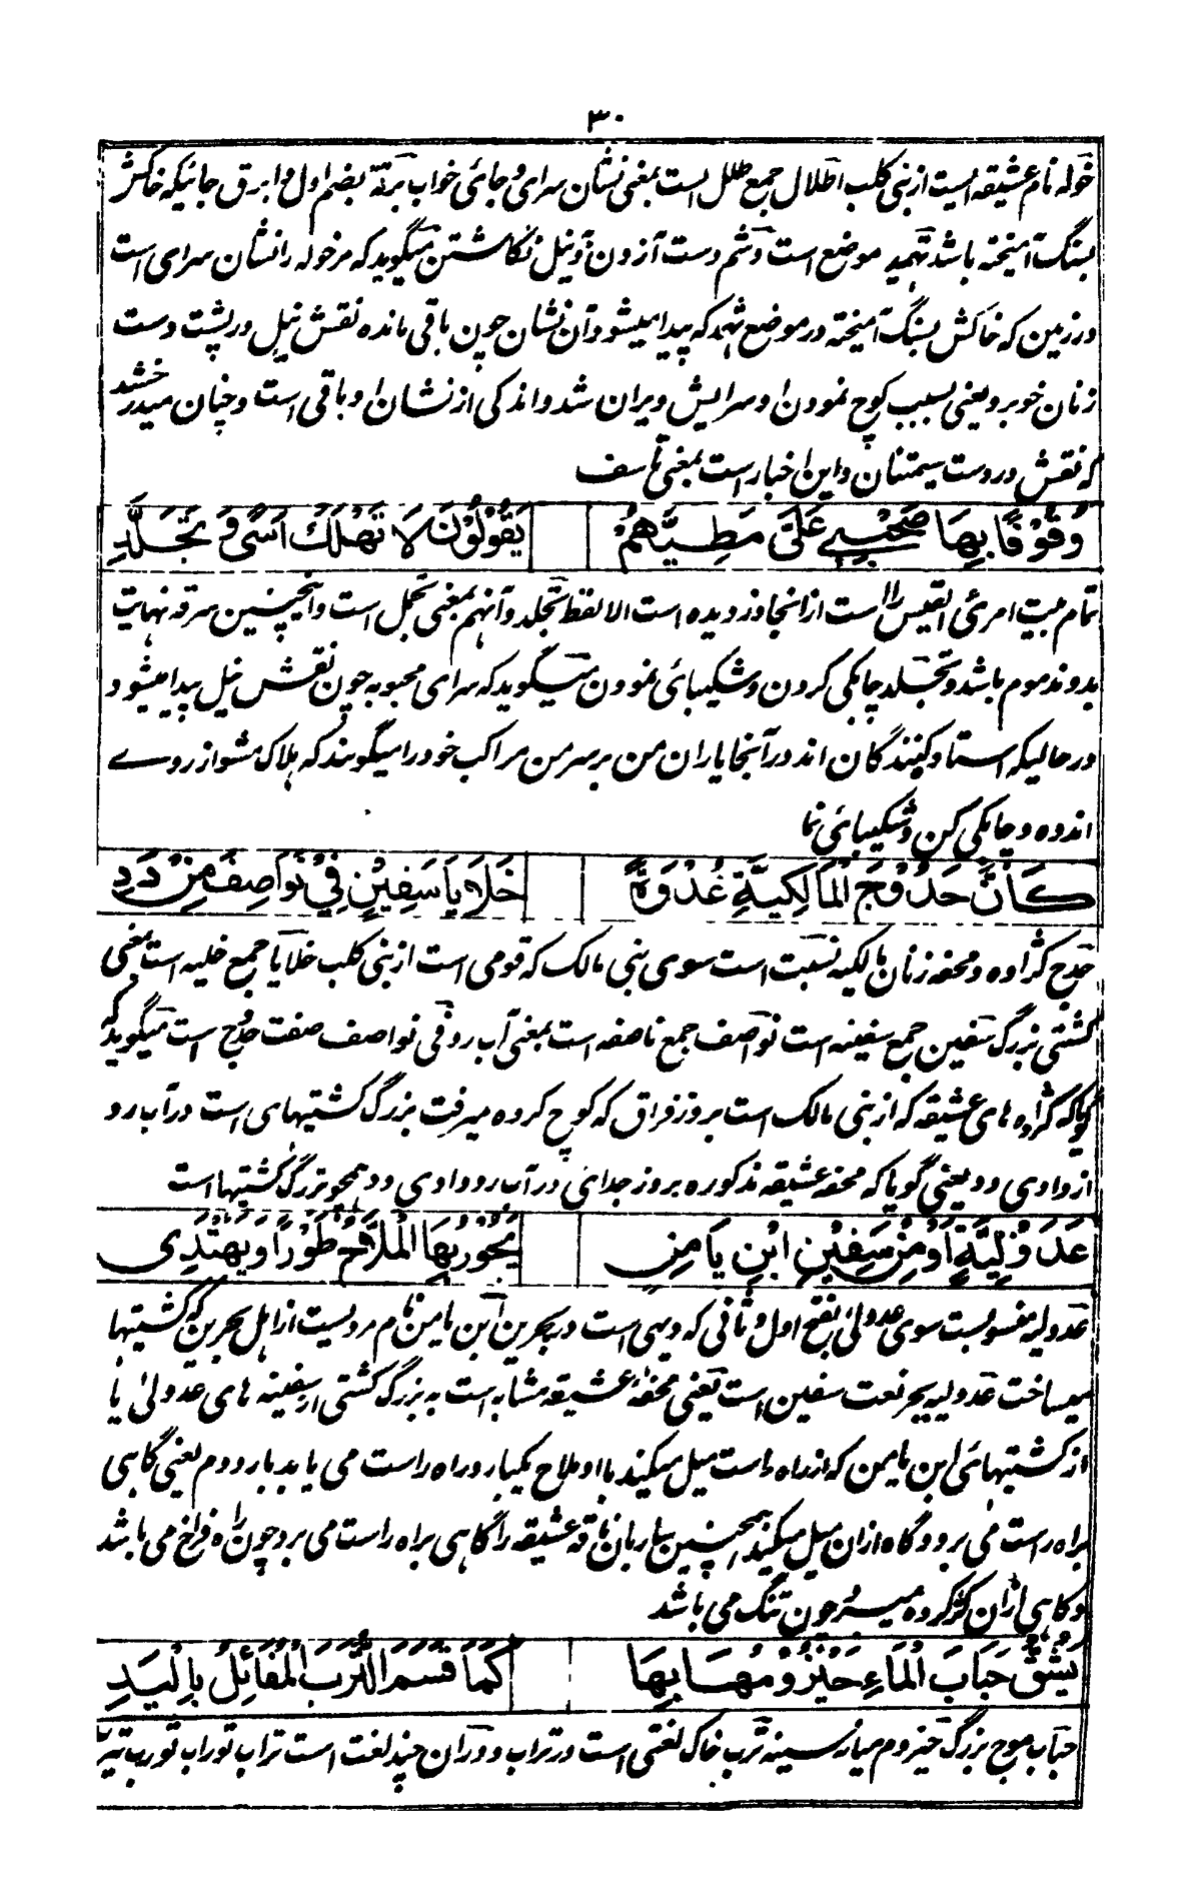 ۳۰
خوله نام عشیقه ایست از بنی کلب اطلال جمع طلل است بمعنی نشان سرای و جای خواب برقة بضم اول و ابرق جائیکه خاکش
بسنگ آمیخته باشد ثهمد موضع است وشم دست آزدن و نیل نگاشتن میگوید که مر خوله را نشان سرای است
در زمین که خاکش بسنگ آمیخته در موضع ثهمد که پیدا میشود آن نشان چون باقی مانده نقش نیل در پشت دست
زنان خوبرو یعنی بسبب کوچ نمودن او سرایش ویران شد و اندکی از نشان او باقی است و چنان میدرخشد
که نقش در دست سیمتنان و این اخبار است بمعنی تاسف
وُقُوْفًا بِهَا صَحْبِيْ عَلَيَّ مَطِيَّهُمْ يَقُوْلُوْنَ لَا تَهْلَكْ اَسًى وَ تَجَلَّدِ
تمام بیت امرئ القیس را است از انجا دزدیده است الا لفظ تجلد و آنهم بمعنی تجمل است و اینچنین سرقه نهایت
بد و مذموم باشد و تجلد چابکی کردن و شکیبائی نمودن میگوید که سرای محبوبه چون نقش نیل پیدا میشود
در حالیکه استاده کنندگان اند در آنجا یاران من بر سر من مراکب خود را میگویند که هلاک مشو از روے
اندوه و چابکی کن و شکیبائی نما
كَأَنَّ حُدُوْجَ الْمَالِكِيَّةِ غُدْوَةً خَلَايَا سَفِيْنٍ فِيْ نَوَاصِفَ مِنْ دَدِ
حدج کژاوه و محفه زنان مالکیه نسبت است سوی بنی مالک که قومی است از بنی کلب خلایا جمع خلیه است بمعنی
کشتی بزرگ سفین جمع سفینه است نواصف جمع ناصفه است بمعنی آب رو فی نواصف صفت حدوج است میگوید که
گویا که کژاوه های عشیقه که از بنی مالک است بروز فراق که کوچ کرده میرفت بزرگ کشتیهای است در آب رو
از وادی دد یعنی گویا که محفه عشیقه مذکوره بروز جدائی در آب رو وادی دد همچو بزرگ کشتیها است
عَدَوْلِيَّةٍ اَوْ مِنْ سَفِيْنِ ابْنِ يَامِنٍ يَجُوْرُ بِهَا الْمَلَّاحُ طَوْرًا وَ يَهْتَدِي
عدولیه منسوبست سوی عدولیٰ بفتح اول و ثانی که دیهی است در بحرین ابن یامن نام مردیست از اهل بحرین که کشتیها
میساخت عدولیه بجر نعت سفین است یعنی محفهٔ عشیقه مشابه است به بزرگ کشتی از سفینه های عدولیٰ یا
از کشتیهائی ابن یامن که از راه راست میل میکند با او ملاح یکبار و راه راست می یابد بار دوم یعنی گاهی
براه راست می برد و گاه ازان میل میکند همچنین ساربان ناقه عشیقه را گاهی براه راست می برد چون راه فراخ می باشد
و گاهی ازان کژ کرده میبرد چون تنگ می باشد
يَشُقُّ حَبَابَ الْمَاءِ حَيْزُوْمُهَا بِهَا كَمَا قَسَمَ التُّرْبَ الْمُفَائِلُ بِالْيَدِ
حباب موج بزرگ حیزوم میانه سینه ترب خاک لغتی است در تراب و دران چند لغت است تراب توراب تورب تیرب